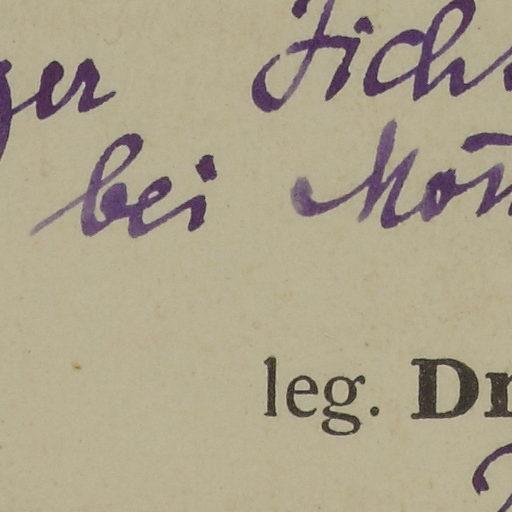 ger Ficht
bei Mön
leg. Dr